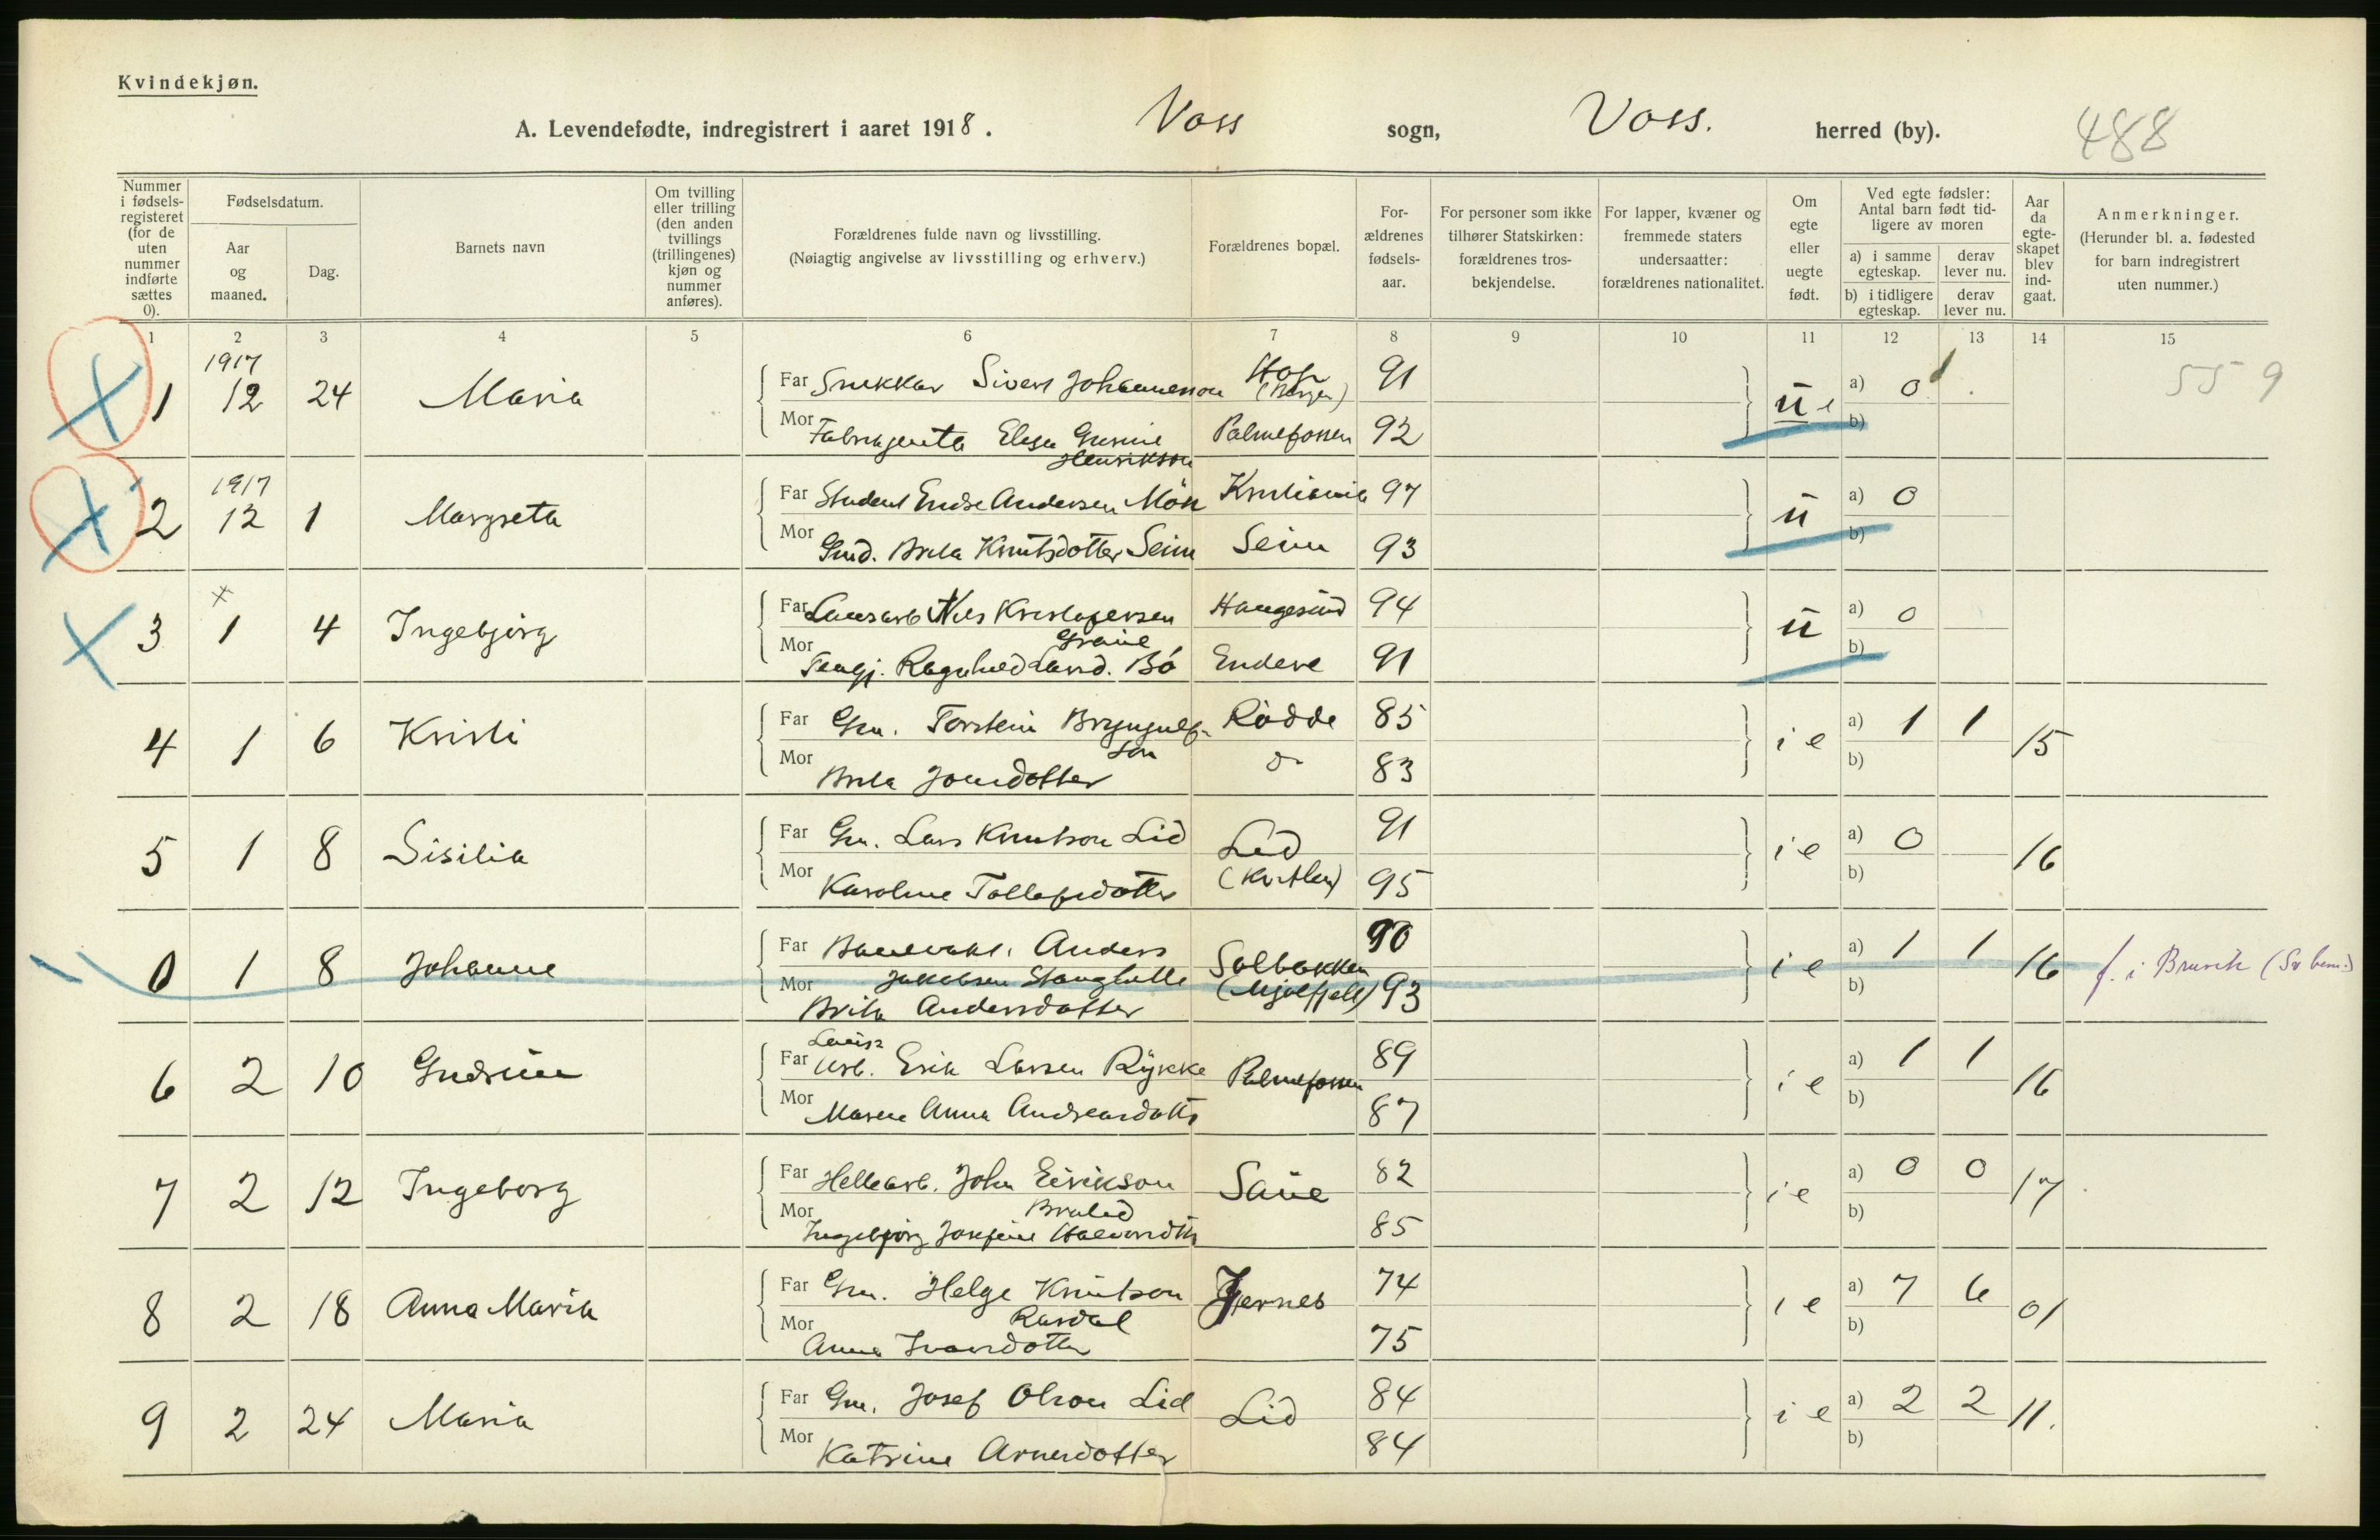 Kvindekjøn.
A. Levendefødte, indregistrert i aaret 1918. Voss sogn, Voss. herred (by). 488
Nummer i fødsels-registeret (for de uten nummer indførte sættes 0).
Fødselsdatum.
Aar og maaned.
Dag.
Barnets navn
Om tvilling eller trilling (den anden tvillings (trillingenes) kjøn og nummer anføres).
Forældrenes fulde navn og livsstilling.
(Nøiagtig angivelse av livsstilling og erhverv.)
Forældrenes bopæl.
For-ældrenes fødsels-aar.
For personer som ikke tilhører Statskirken: forældrenes tros-bekjendelse.
For lapper, kvæner og fremmede staters undersaatter: forældrenes nationalitet.
Om egte eller uegte født.
Ved egte fødsler: Antal barn født tid-ligere av moren
a) i samme egteskap. derav lever nu.
b) i tidligere egteskap. derav lever nu.
Aar da egte-skapet blev ind-gaat.
Anmerkninger.
(Herunder bl. a. fødested for barn indregistrert uten nummer.)
1 2 3 4 5 6 7 8 9 10 11 12 13 14 15
1917
1 12 24 Maria Far Snekkar Sivert Johannesson Hop (Bergen) 91 u e a) 0 559
Mor Fabrikgenta Elesa Gurine Henrikson Palmefossen 92 b)
1917
2 12 1 Margreta Far Student Endre Andersen Møn Kristiania 97 u a) 0
Mor Gmd. Brita Knutsdotter Seim Seim 93 b)
3 1 4 Ingebjørg Far Nils Kristofersen Haugesund 94 u a) 0
Mor Ragnhild Bø Endeve 91 b)
4 1 6 Kristi Far Gm. Torstein Bryngulf-son Rødde 85 i e a) 1 1 15
Mor Brita Jonsdotter do 83 b)
5 1 8 Sisilia Far Gm. Lars Knutson Lid Lid 91 i e a) 0 16
Mor Karoline Tollefsdotter 95 b)
0 1 8 Johanne Far Banevakt. Anders Jakobsen Stanghelle Solbakken (Mjølfjell) 90 i e a) 1 1 16 f. i Bruvik
Mor Brita Andersdotter 93 b)
6 2 10 Gudrun Far arb. Erik Larsen Rykke Palmefossen 89 i e a) 1 1 16
Mor Maren Anna Andreasdotter 87 b)
7 2 12 Ingeborg Far Hellearb. John Eirikson Bralid Saue 82 i e a) 0 0 17
Mor Ingebjørg Josefine Halvorsdtr 85 b)
8 2 18 Anna Maria Far Gm. Helge Knutson Rasdal Gjernes 74 i e a) 7 6 01
Mor Anna Ivarsdotter 75 b)
9 2 24 Maria Far Gm. Josef Olson Lid Lid 84 i e a) 2 2 11.
Mor Katrine Arnesdotter 84 b)